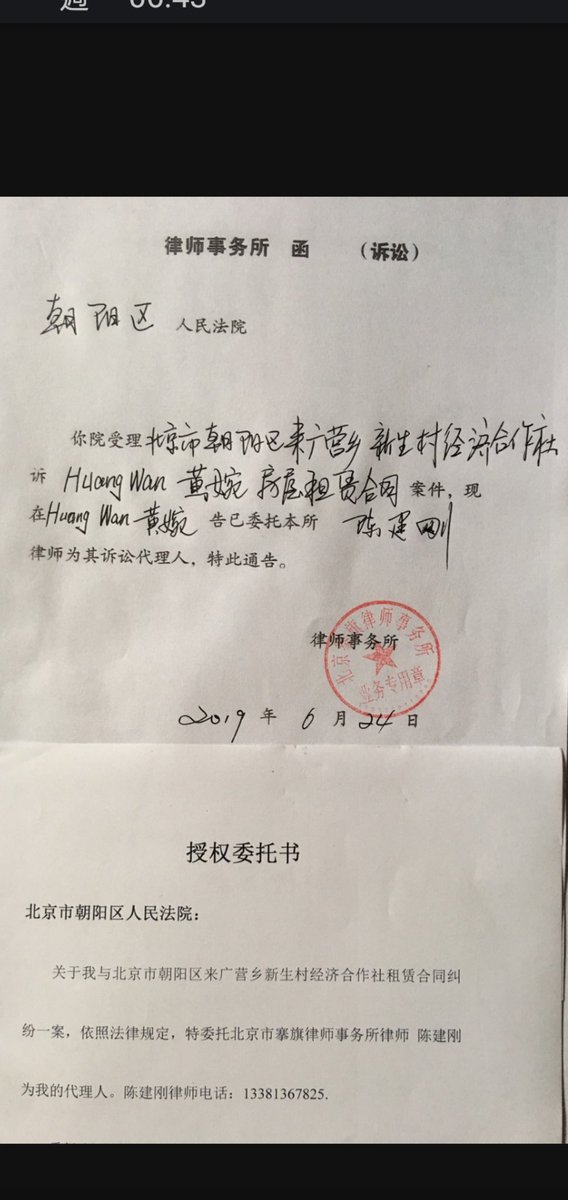 06:45
律师事务所 函 （诉讼）
朝阳区 人民法院
你院受理北京市朝阳区来广营乡新生村经济合作社
诉 Huang Wan 黄婉 房屋租赁合同 案件，现
在Huang Wan 黄婉 告已委托本所 陈建刚
律师为其诉讼代理人，特此通告。
律师事务所
业务专用章
2019 年 6 月 24 日
授权委托书
北京市朝阳区人民法院：
关于我与北京市朝阳区来广营乡新生村经济合作社租赁合同纠
纷一案，依照法律规定，特委托北京市寨旗律师事务所律师 陈建刚
为我的代理人。陈建刚律师电话：13381367825.